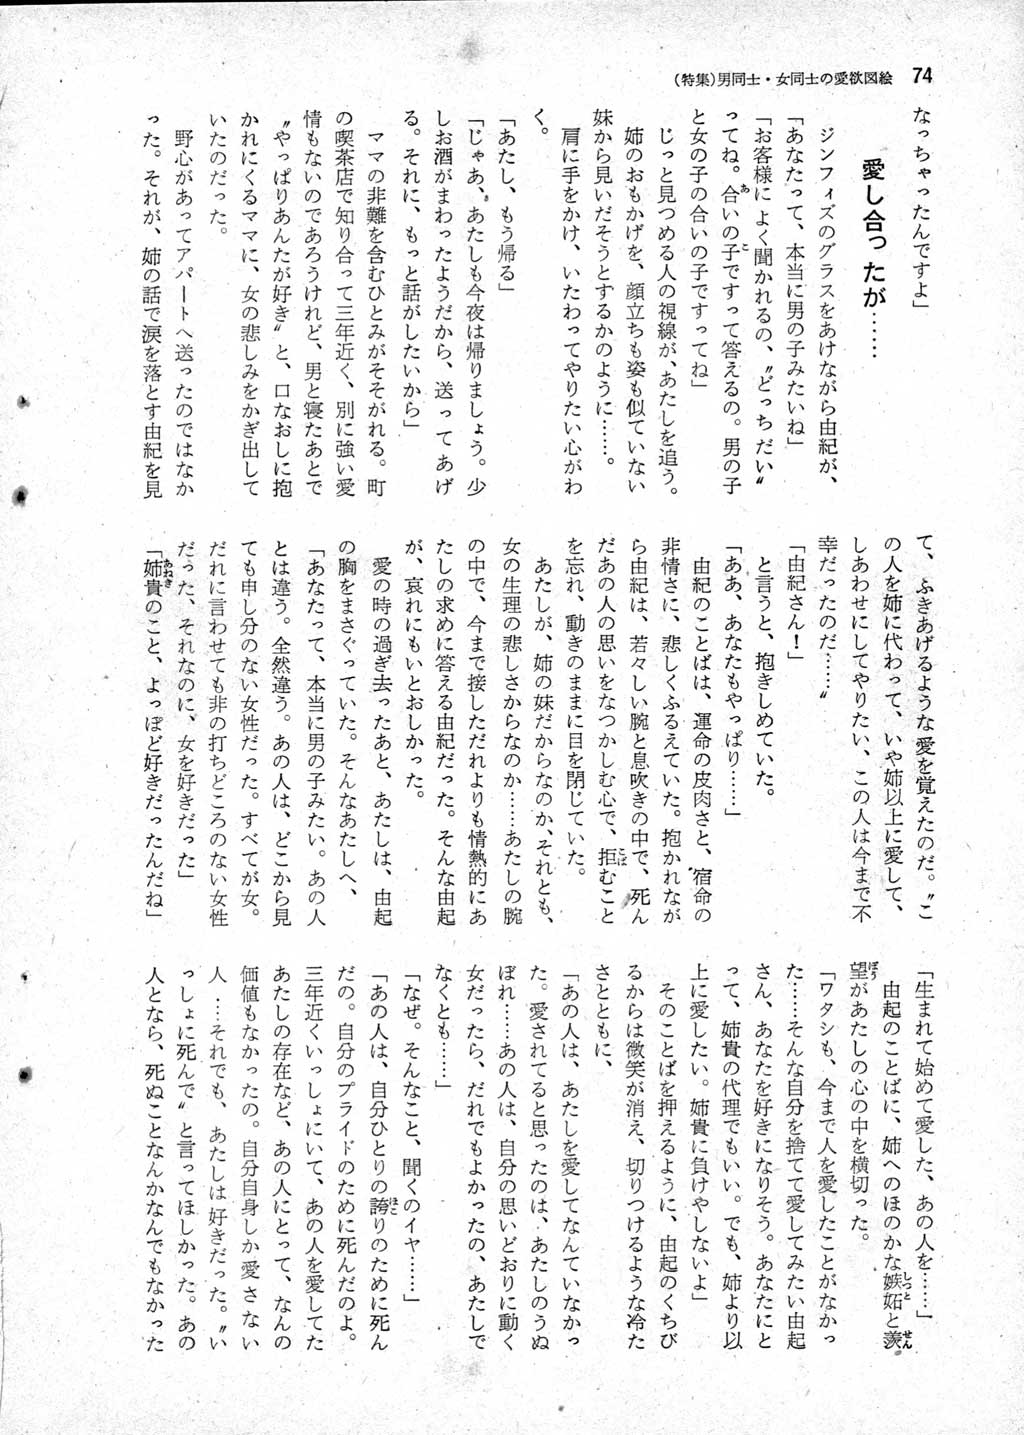 (特集)男同士・女同士の愛欲図絵　74
なっちゃったんですよ」
愛し合ったが……
　ジンフィズのグラスをあけながら由紀が、
「あなたって、本当に男の子みたいね」
「お客様によく聞かれるの、〝どっちだい〟
ってね。合いの子ですって答えるの。男の子
と女の子の合いの子ですってね」
　じっと見つめる人の視線が、あたしを追う。
　姉のおもかげを、顔立ちも姿も似ていない
妹から見いだそうとするかのように……。
　肩に手をかけ、いたわってやりたい心がわ
く。
「あたし、もう帰る」
「じゃあ、あたしも今夜は帰りましょう。少
しお酒がまわったようだから、送ってあげ
る。それに、もっと話がしたいから」
　ママの非難を含むひとみがそそがれる。町
の喫茶店で知り合って三年近く、別に強い愛
情もないのであろうけれど、男と寝たあとで
〝やっぱりあんたが好き〟と、口なおしに抱
かれにくるママに、女の悲しみをかぎ出して
いたのだった。
　野心があってアパートへ送ったのではなか
った。それが、姉の話で涙を落とす由紀を見
て、ふきあげるような愛を覚えたのだ。〝こ
の人を姉に代わって、いや姉以上に愛して、
しあわせにしてやりたい、この人は今まで不
幸だったのだ……〟
「由紀さん！」
　と言うと、抱きしめていた。
「ああ、あなたもやっぱり……」
　由紀のことばは、運命の皮肉さと、宿命の
非情さに、悲しくふるえていた。抱かれなが
ら由紀は、若々しい腕と息吹きの中で、死ん
だあの人の思いをなつかしむ心で、拒むこと
を忘れ、動きのままに目を閉じていた。
　あたしが、姉の妹だからなのか、それとも、
女の生理の悲しさからなのか……あたしの腕
の中で、今まで接しただれよりも情熱的にあ
たしの求めに答える由紀だった。そんな由起
が、哀れにもいとおしかった。
　愛の時の過ぎ去ったあと、あたしは、由起
の胸をまさぐっていた。そんなあたしへ、
「あなたって、本当に男の子みたい。あの人
とは違う。全然違う。あの人は、どこから見
ても申し分のない女性だった。すべてが女。
だれに言わせても非の打ちどころのない女性
だった、それなのに、女を好きだった」
「姉貴のこと、よっぽど好きだったんだね」
「生まれて始めて愛した、あの人を……」
　由起のことばに、姉へのほのかな嫉妬と羨
望があたしの心の中を横切った。
「ワタシも、今まで人を愛したことがなかっ
た……そんな自分を捨てて愛してみたい由起
さん、あなたを好きになりそう。あなたにと
って、姉貴の代理でもいい。でも、姉より以
上に愛したい。姉貴に負けやしないよ」
　そのことばを押えるように、由起のくちび
るからは微笑が消え、切りつけるような冷た
さとともに、
「あの人は、あたしを愛してなんていなかっ
た。愛されてると思ったのは、あたしのうぬ
ぼれ……あの人は、自分の思いどおりに動く
女だったら、だれでもよかったの、あたしで
なくとも……」
「なぜ。そんなこと、聞くのイヤ……」
「あの人は、自分ひとりの誇りのために死ん
だの。自分のプライドのために死んだのよ。
三年近くいっしょにいて、あの人を愛してた
あたしの存在など、あの人にとって、なんの
価値もなかったの。自分自身しか愛さない
人……それでも、あたしは好きだった。〝い
っしょに死んで〟と言ってほしかった。あの
人となら、死ぬことなんかなんでもなかった